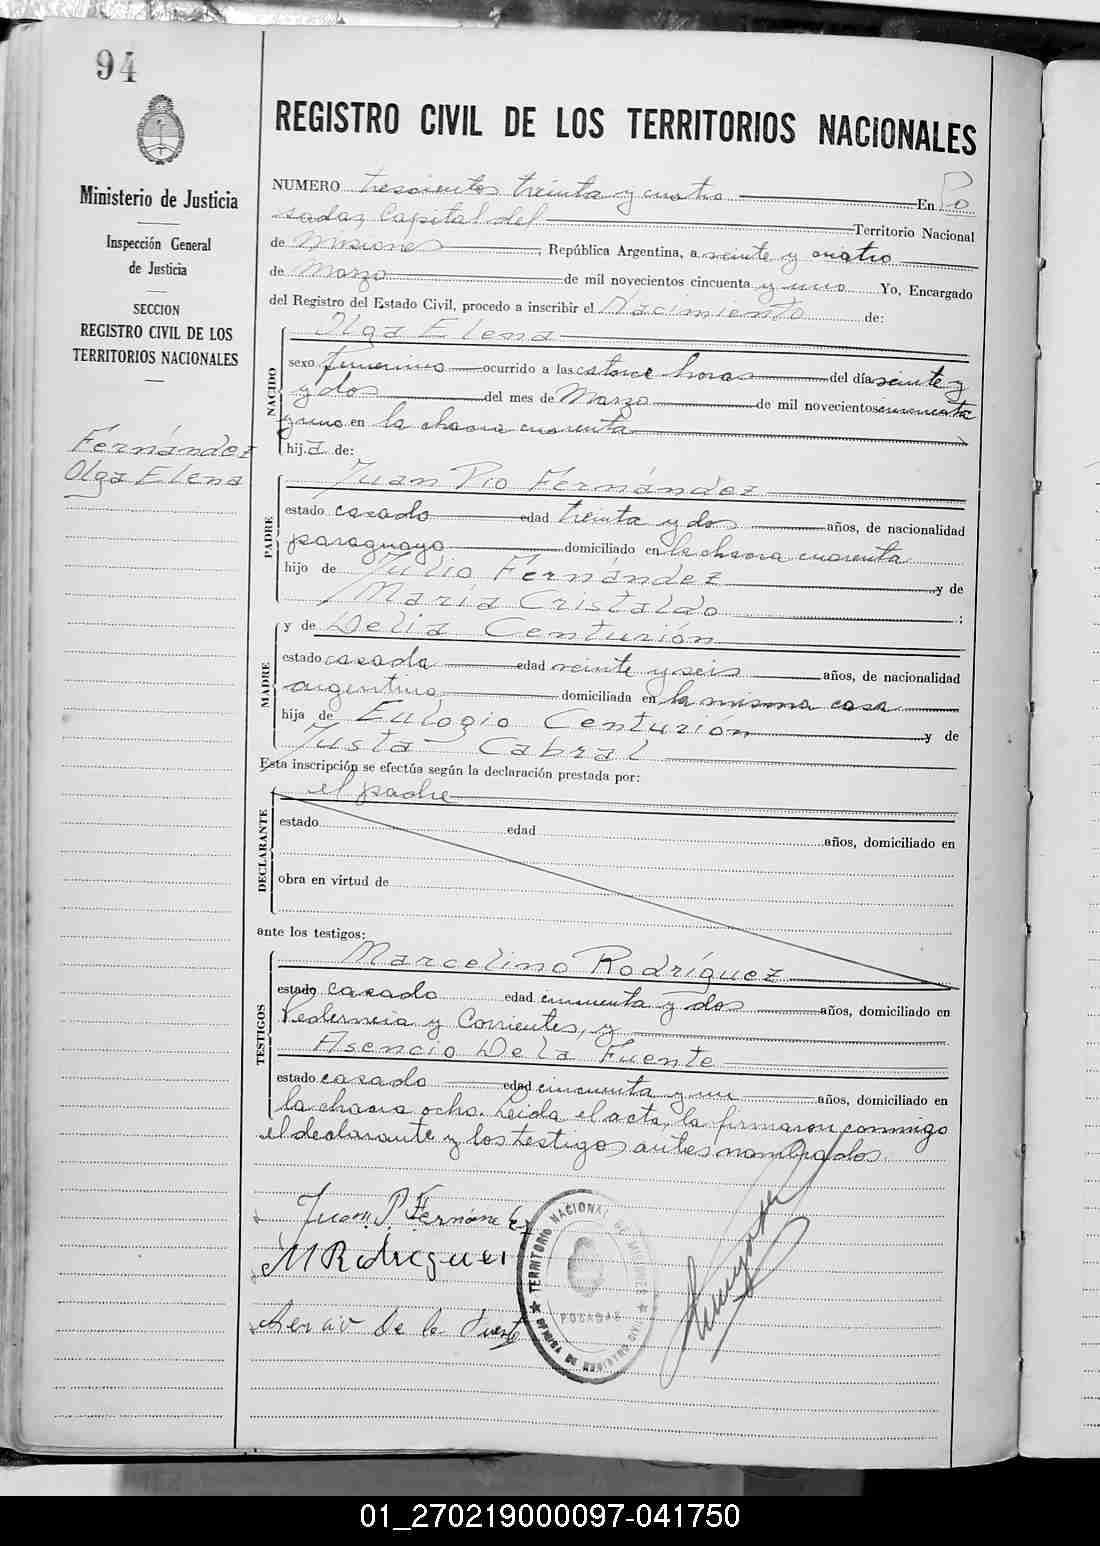 94
Ministerio de Justicia
Inspección General
de Justicia
SECCION
REGISTRO CIVIL DE LOS
TERRITORIOS NACIONALES
Fernández
Olga Elena
REGISTRO CIVIL DE LOS TERRITORIOS NACIONALES
NUMERO trescientos treinta y cuatro En Po
sadas, Capital del Territorio Nacional
de Misiones, República Argentina, a veinte y cuatro
de Marzo de mil novecientos cincuenta y uno Yo, Encargado
del Registro del Estado Civil, procedo a inscribir el Nacimiento de:
NACIDO
Olga Elena
sexo femenino ocurrido a las catorce horas del día veinte y
y dos del mes de Marzo de mil novecientos cincuenta
y uno en la chacra cuarenta
hija de:
PADRE
Juan Pio Fernández
estado casado edad treinta y dos años, de nacionalidad
paraguayo domiciliado en la chacra cuarenta
hijo de Julio Fernández y de
María Cristaldo ;
MADRE
y de Delia Centurión
estado casada edad veinte y seis años, de nacionalidad
argentina domiciliada en la misma casa
hija de Eulogio Centurión y de
Justa Cabral
Esta inscripción se efectúa según la declaración prestada por:
DECLARANTE
el padre
estado edad años, domiciliado en
obra en virtud de
ante los testigos:
TESTIGOS
Marcelino Rodríguez
estado casado edad cincuenta y dos años, domiciliado en
y Corrientes, y
Asencio De la Fuente
estado casado edad cincuenta y un años, domiciliado en
la chacra ocho. Leida el acta, la firmaron conmigo
el declarante y los testigos antes nombrados.
Juan P. Fernández
M Rodriguez
de la Fuente
TERRITORIO NACIONAL DE MISIONES
POSADAS
OFICINA DE REGISTRO CIVIL
01_270219000097-041750